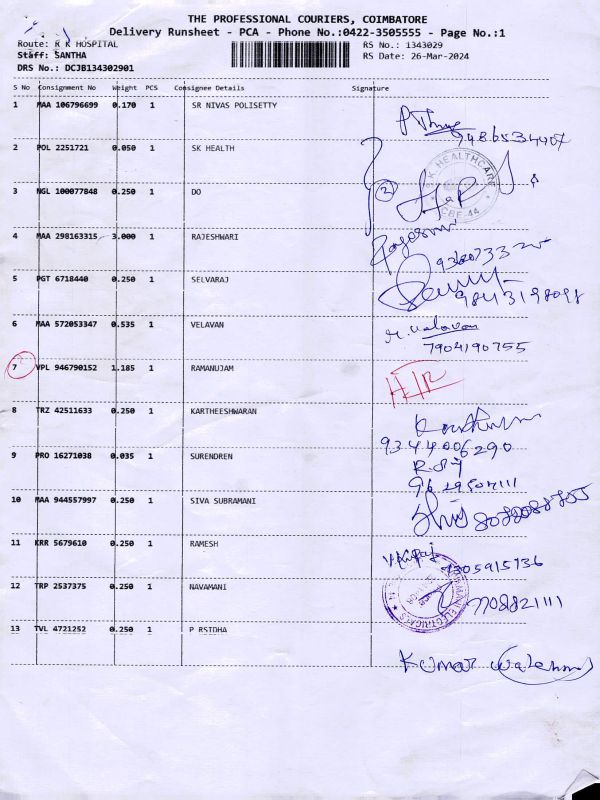 THE PROFESSIONAL COURIERS, COIMBATORE
Delivery Runsheet - PCA - Phone No.:0422-3505555 - Page No.:1
Route: R K HOSPITAL
RS No.: 1343029
Staff: SANTHA
RS Date: 26-Mar-2024
DRS No.: DCJB134302901
S No Consignment No Weight PCS Consignee Details Signature
1 MAA 106796699 0.170 1 SR NIVAS POLISETTY
9486534407
2 POL 2251721 0.050 1 SK HEALTH
S.K. HEALTHCARE
CBE-44
2
3 NGL 100077848 0.250 1 DO
4 MAA 298163315 3.000 1 RAJESHWARI
5 PGT 6718440 0.250 1 SELVARAJ
9843198098
6 MAA 572053347 0.535 1 VELAVAN
M. Velavan
7904190755
7 VPL 946790152 1.185 1 RAMANUJAM
8 TRZ 42511633 0.250 1 KARTHEESHWARAN
9344006290
9 PRO 16271038 0.035 1 SURENDREN
10 MAA 944557997 0.250 1 SIVA SUBRAMANI
11 KRR 5679610 0.250 1 RAMESH
7305915736
12 TRP 2537375 0.250 1 NAVAMANI
ELECTRICALS
7708821111
13 TVL 4721252 0.250 1 P RSIDHA
Kumar